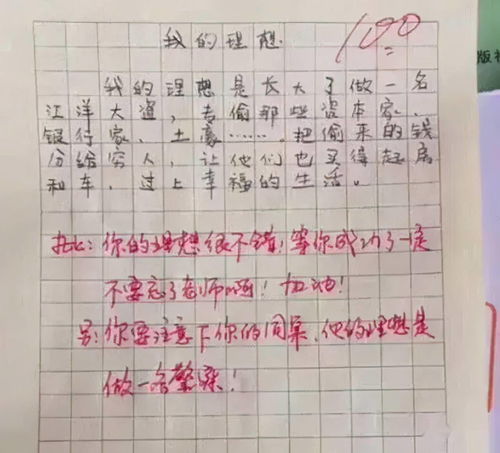 我的理想
100
我的理想是长大了做一名
江洋大盗，专偷那些资本家、
银行家、土豪……。把偷来的钱
分给穷人，让他们也买得起房
和车，过上幸福的生活。
批：你的理想很不错！等你成功了一定
不要忘了老师啊！加油！
另：你要注意下你的同桌，他的理想是
做一名警察！
版